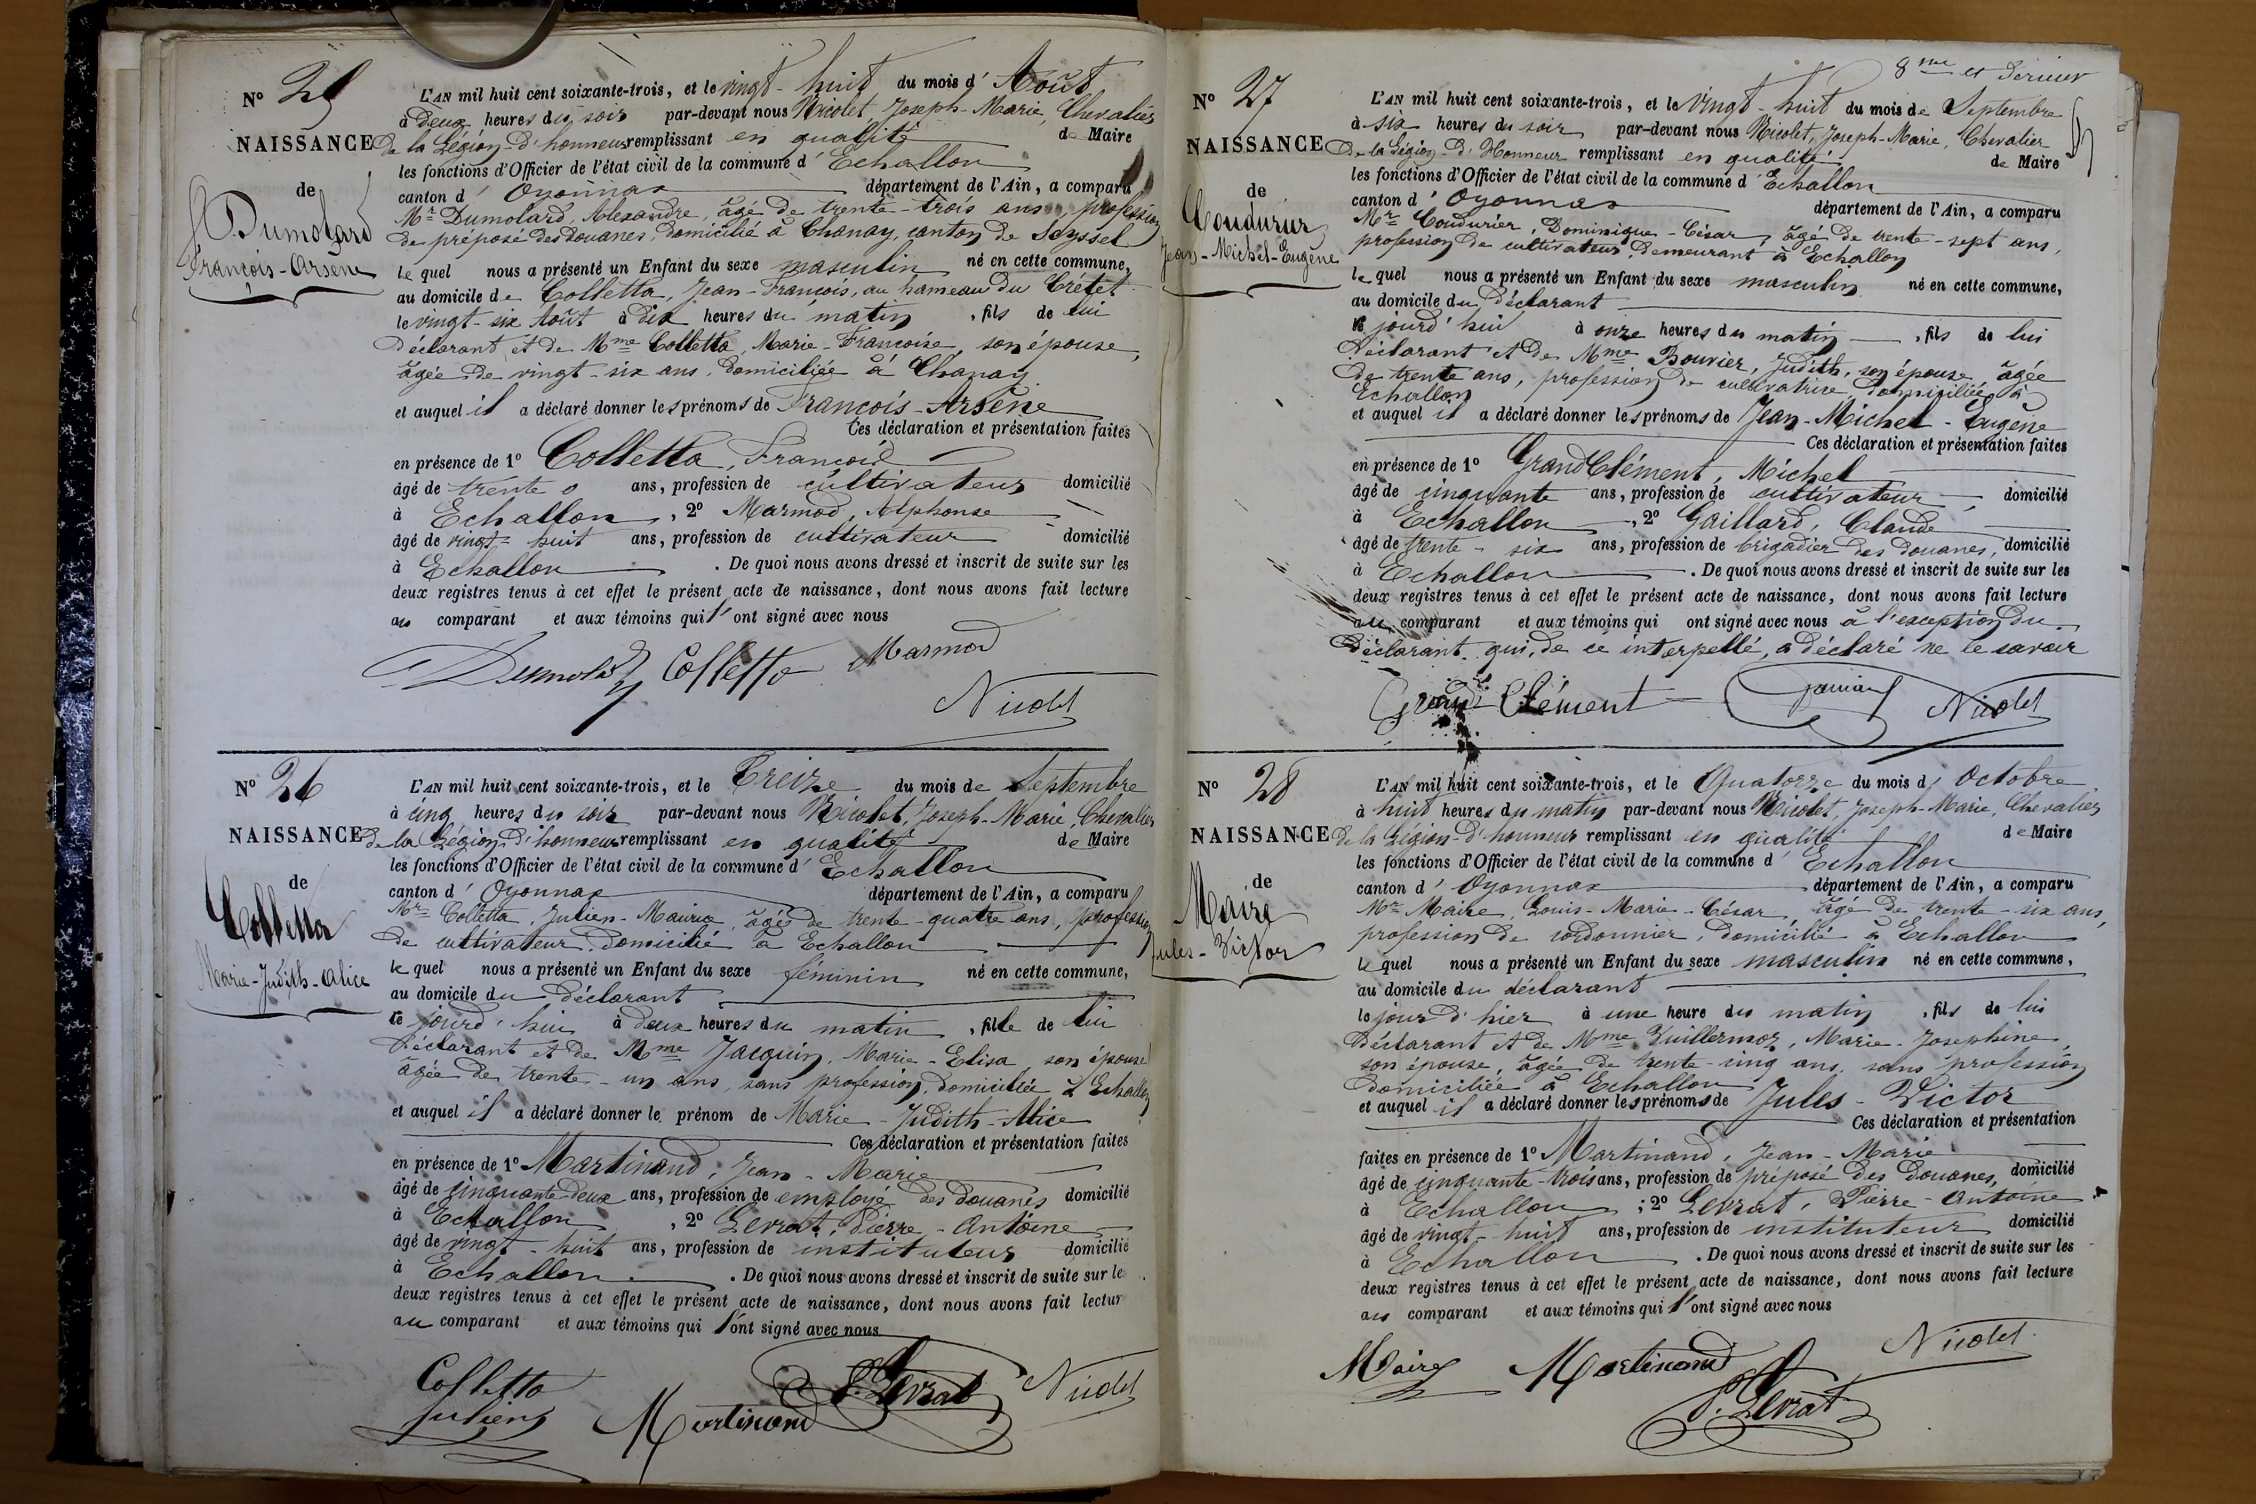 N° 25
NAISSANCE
de
Dumolard
François-Arsène
L'AN mil huit cent soixante-trois, et le vingt-huit du mois d' Août
à deux heures du soir par-devant nous Nicolet Joseph-Marie, Chevalier
de la Légion d'honneur remplissant en qualité de Maire
les fonctions d'Officier de l'état civil de la commune d' Echallon
canton d' Oyonnax département de l'Ain, a comparu
Mr Dumolard, Alexandre, âgé de trente-trois ans, profession
de préposé des douanes, domicilié à Chanay, canton de Seyssel
le quel nous a présenté un Enfant du sexe masculin né en cette commune,
au domicile de Colletta, Jean-François, au hameau du Crétet
le vingt-six Août à dix heures du matin, fils de lui
Déclarant et de Mme Colletta, Marie-Françoise, son épouse,
âgée de vingt-six ans, domiciliée à Chanay
et auquel il a déclaré donner les prénoms de François-Arsène
Ces déclaration et présentation faites
en présence de 1° Colletta, François
âgé de trente ans, profession de cultivateur domicilié
à Echallon, 2° Marmod, Alphonse
âgé de vingt-huit ans, profession de cultivateur domicilié
à Echallon. De quoi nous avons dressé et inscrit de suite sur les
deux registres tenus à cet effet le présent acte de naissance, dont nous avons fait lecture
au comparant et aux témoins qui l'ont signé avec nous
Dumolard Colletta Marmod
Nicolet
N° 26
NAISSANCE
de
Colletta
Marie-Judith-Alice
L'AN mil huit cent soixante-trois, et le Treize du mois de Septembre
à cinq heures du soir par-devant nous Nicolet, Joseph-Marie, Chevalier
de la Légion d'honneur remplissant en qualité de Maire
les fonctions d'Officier de l'état civil de la commune d' Echallon
canton d' Oyonnax département de l'Ain, a comparu
Mr Colletta, Julien-Maurice, âgé de trente-quatre ans, profession
de cultivateur, domicilié à Echallon
le quel nous a présenté un Enfant du sexe féminin né en cette commune,
au domicile du déclarant
le jourd'hui à deux heures du matin, fille de lui
Déclarant et de Mme Jacquin, Marie-Elisa son épouse
âgée de trente-un ans, sans profession, domiciliée à Echallon
et auquel il a déclaré donner le prénom de Marie-Judith-Alice
Ces déclaration et présentation faites
en présence de 1° Martinand, Jean-Marie
âgé de cinquante-deux ans, profession de employé des douanes domicilié
à Echallon, 2° Levrat, Pierre-Antoine
âgé de vingt-huit ans, profession de instituteur domicilié
à Echallon. De quoi nous avons dressé et inscrit de suite sur le
deux registres tenus à cet effet le présent acte de naissance, dont nous avons fait lectur
au comparant et aux témoins qui l'ont signé avec nous
Colletta
Julien Martinand P. Levrat Nicolet
8me et dernier
N° 27
NAISSANCE
de
Coudurier
Jean-Michel-Eugène
L'AN mil huit cent soixante-trois, et le Vingt-huit du mois de Septembre
à six heures du soir par-devant nous Nicolet, Joseph-Marie, Chevalier
de la Légion-d'Honneur remplissant en qualité de Maire
les fonctions d'Officier de l'état civil de la commune d' Echallon
canton d' Oyonnax département de l'Ain, a comparu
Mr Coudurier, Dominique-César, âgé de trente-sept ans,
profession de cultivateur, demeurant à Echallon
le quel nous a présenté un Enfant du sexe masculin né en cette commune,
au domicile du déclarant
le jourd'hui à onze heures du matin, fils de lui
Déclarant et de Mme Bouvier, Judith, son épouse, âgée
de trente ans, profession de cultivatrice, domiciliée à
Echallon
et auquel il a déclaré donner les prénoms de Jean-Michel-Eugène
Ces déclaration et présentation faites
en présence de 1° GrandClément, Michel
âgé de cinquante ans, profession de cultivateur, domicilié
à Echallon, 2° Gaillard, Claude
âgé de trente-six ans, profession de brigadier des douanes, domicilié
à Echallon. De quoi nous avons dressé et inscrit de suite sur les
deux registres tenus à cet effet le présent acte de naissance, dont nous avons fait lecture
au comparant et aux témoins qui ont signé avec nous à l'exception du
Déclarant qui, de ce interpellé, a déclaré ne le savoir
Grand Clément Nicolet
N° 28
NAISSANCE
de
Maire
Jules-Victor
L'AN mil huit cent soixante-trois, et le Quatorze du mois d' Octobre
à huit heures du matin par-devant nous Nicolet, Joseph-Marie, Chevalier
de la Légion-d'honneur remplissant en qualité de Maire
les fonctions d'Officier de l'état civil de la commune d' Echallon
canton d' Oyonnax département de l'Ain, a comparu
Mr Maire, Louis-Marie-César, âgé de trente-six ans,
profession de cordonnier, domicilié à Echallon
le quel nous a présenté un Enfant du sexe masculin né en cette commune,
au domicile du déclarant
le jour d'hier à une heure du matin, fils de lui
Déclarant et de Mme Vuillermoz, Marie-Joséphine,
son épouse, âgée de trente-cinq ans, sans profession
domiciliée à Echallon
et auquel il a déclaré donner les prénoms de Jules-Victor
Ces déclaration et présentation
faites en présence de 1° Martinand, Jean-Marie
âgé de cinquante-trois ans, profession de préposé des Douanes, domicilié
à Echallon; 2° Levrat, Pierre-Antoine
âgé de vingt-huit ans, profession de instituteur domicilié
à Echallon. De quoi nous avons dressé et inscrit de suite sur les
deux registres tenus à cet effet le présent acte de naissance, dont nous avons fait lecture
au comparant et aux témoins qui l'ont signé avec nous
Maire Martinand Nicolet
P. Levrat